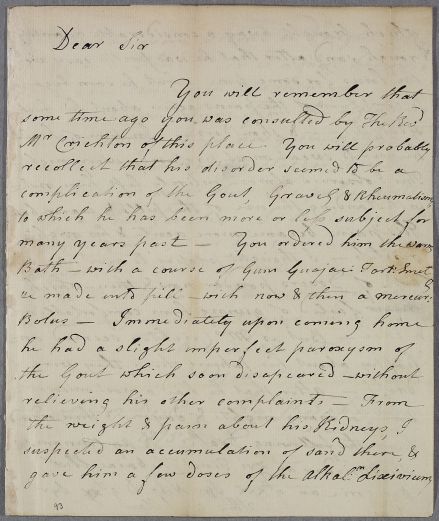 Dear Sir
You will remember that
some time ago you was consulted by The Revd
Mr Crichton of this place. You will probably
recollect that his disorder seemed to be a
complication of the Gout, Gravel, & Rheumatism,
to which he has been more or less subject for
many years past — You ordered him the warm
Bath — with a course of Gum Guajac: Tart: Emet
&c made into pills — with now & then a mercur:
Bolus — Immediately upon coming home
he had a slight imperfect paroxysm of
the Gout which soon disapeared — without
relieving his other complaints — From
the weight & pain about his Kidneys, I
suspected an accumulation of sand there, &
gave him a few doses of the alkaln Lixivium
93